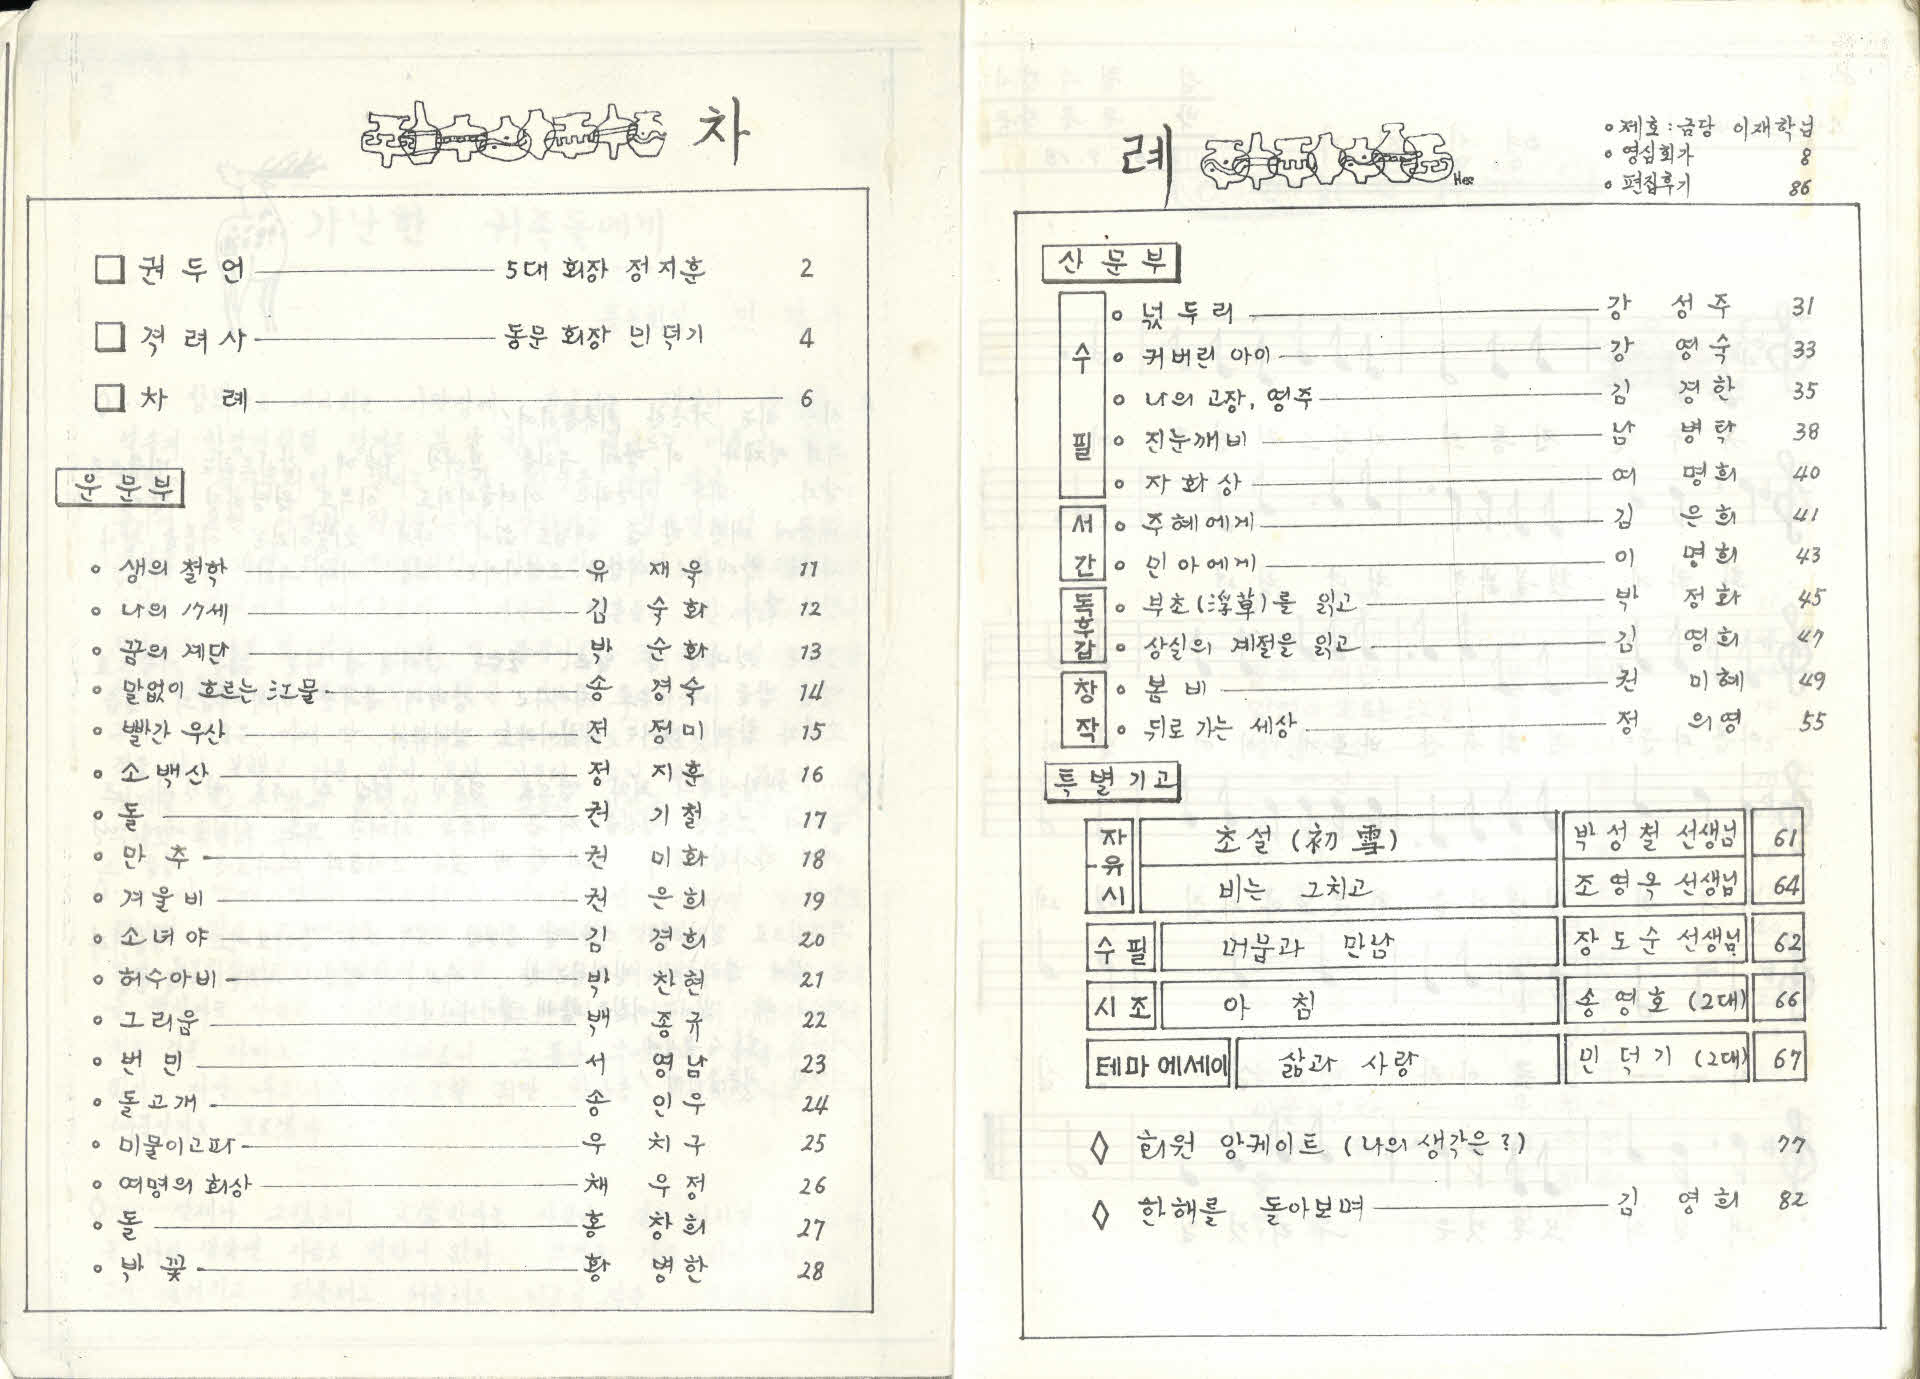 차
□ 권두언 5대 회장 정지훈 2
□ 격려사 동문 회장 민덕기 4
□ 차 례 6
운문부
○ 생의 철학 유 재욱 11
○ 나의 17세 김 숙화 12
○ 꿈의 계단 박 순화 13
○ 말없이 흐르는 江물 송 경숙 14
○ 빨간 우산 전 정미 15
○ 소백산 정 지훈 16
○ 돌 권 기철 17
○ 만추 권 미화 18
○ 겨울비 권 은희 19
○ 소녀야 김 경희 20
○ 허수아비 박 찬현 21
○ 그리움 백 종규 22
○ 번민 서 영남 23
○ 돌고개 송 인우 24
○ 미물이고파 우 치구 25
○ 여명의 회상 채 우정 26
○ 돌 홍 창희 27
○ 박꽃 황 병한 28
례
Hee
○ 제호 : 금당 이재학님
○ 영심회가 8
○ 편집후기 86
산문부
수필
○ 넋두리 강 성주 31
○ 커버린 아이 강 영숙 33
○ 나의 고장, 영주 김 경한 35
○ 진눈깨비 남 병탁 38
○ 자화상 여 명희 40
서간
○ 주혜에게 김 은희 41
○ 민아에게 이 명희 43
독후감
○ 부초(浮草)를 읽고 박 정화 45
○ 상실의 계절을 읽고 김 영희 47
창작
○ 봄비 권 미혜 49
○ 뒤로 가는 세상 정 의영 55
특별기고
자유시 초설(初雪) 박성철 선생님 61
비는 그치고 조영옥 선생님 64
수필 머뭄과 만남 장도순 선생님 62
시조 아 침 송영호 (2대) 66
테마에세이 삶과 사랑 민덕기 (2대) 67
◇ 회원 앙케이트 (나의 생각은?) 77
◇ 한해를 돌아보며 김 영희 82